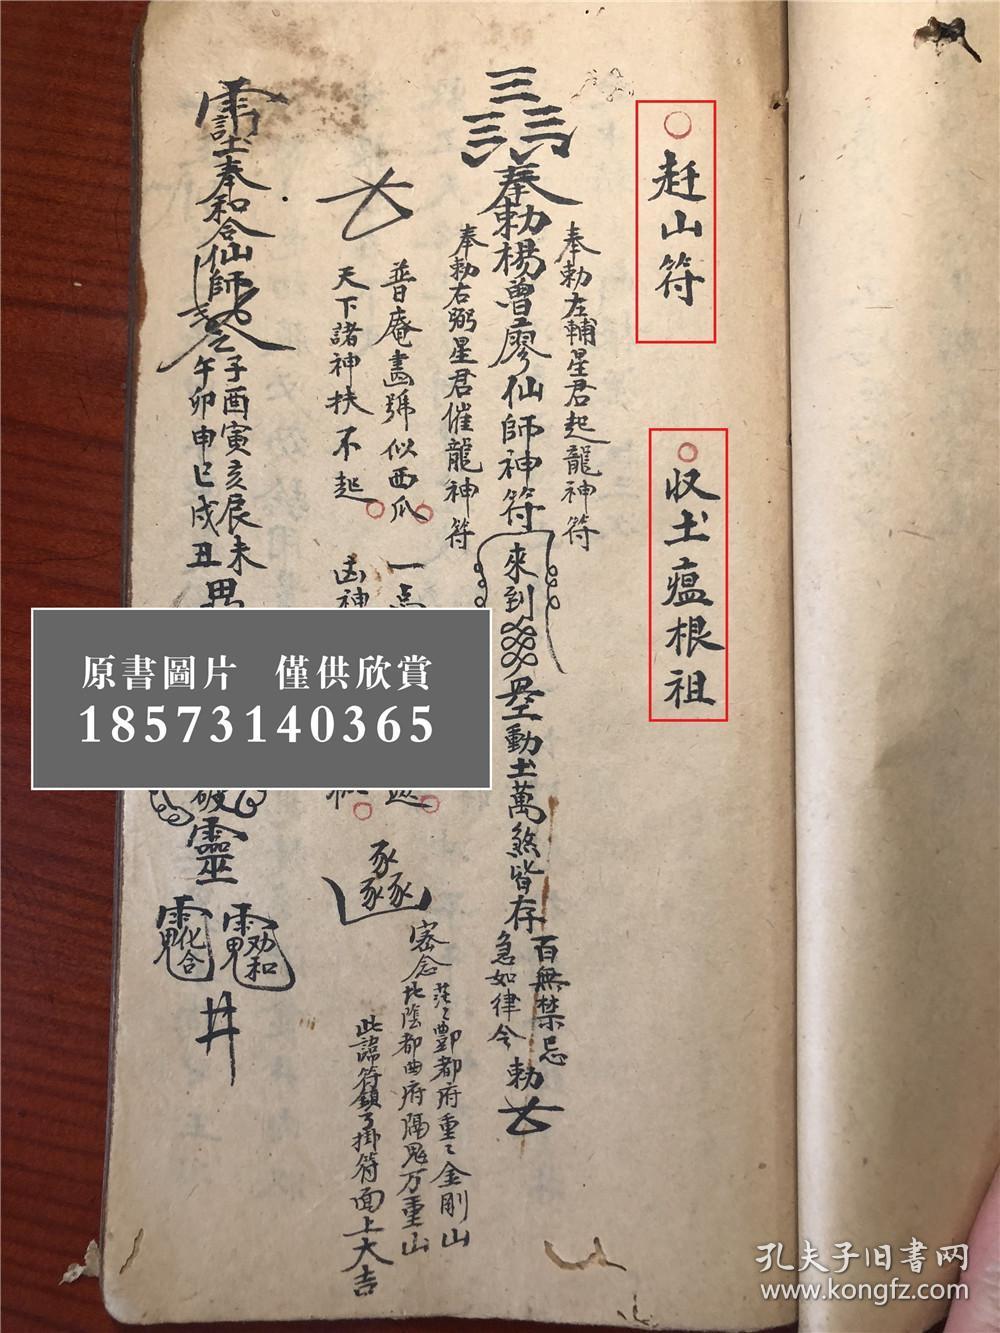 ○赶山符
○收土瘟根祖
奉勅左輔星君起龍神符
奉勅楊曾廖仙師神符來到
動土萬煞皆存
百無禁忌
急如律令勅
奉勅右弼星君催龍神符
普庵畫號似西瓜○一点
天下諸神扶不起○凶神
密念
茫〻酆都府重〻金剛山
北陰都曲府隔鬼万重山
此諱符鎖了掛符面上大吉
奉和合仙師
子酉寅亥辰未
午卯申巳戌丑
靈
劝和
化合
井
原書圖片 僅供欣賞
18573140365
孔夫子旧書网
www.kongfz.com